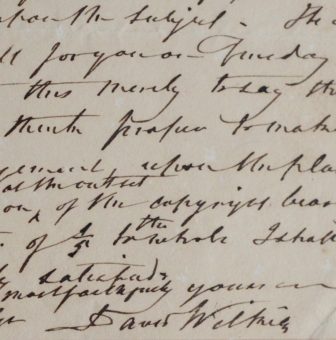 upon the subject. The
ll for you on Tuesday
this merely to say th
think proper to make
gement upon the pla
at the outset
on, of the copyright bea
the
of to whole I shall
satisfied
most faithfully yours
David Wilkie